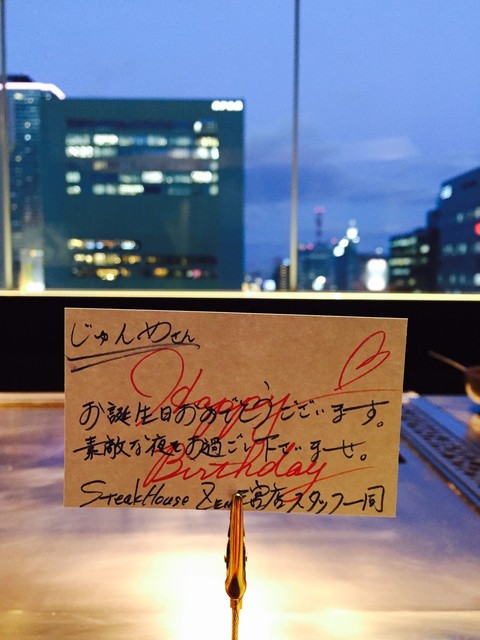 じゅんやさん
Happy
お誕生日おめでとうございます。
素敵な夜をお過ごし下さいませ。
Birthday
SteakHouse ZEN三宮店スタッフ一同